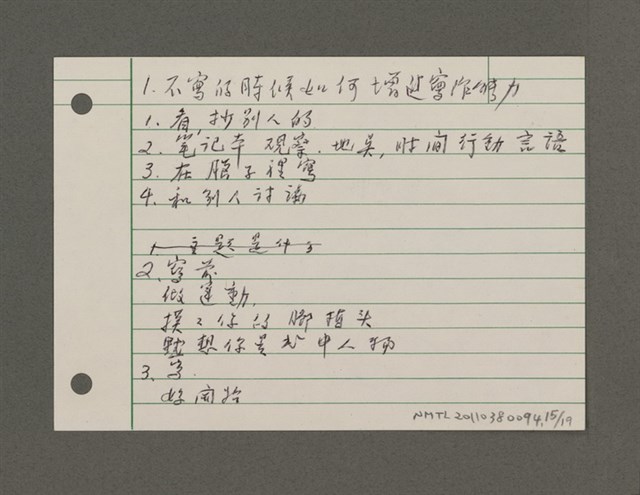 1. 不寫的時候如何增進寫作能力
1. 看, 抄別人的
2. 笔记本 观察. 地点, 时间 行動 言語
3. 在腦子裡寫
4. 和別人讨論
1. 主題是什么
2. 寫前
做運動,
摸々你的脚指头
冥想你是書中人物
3. 寫.
好開始
NMTL20110380094.15/19